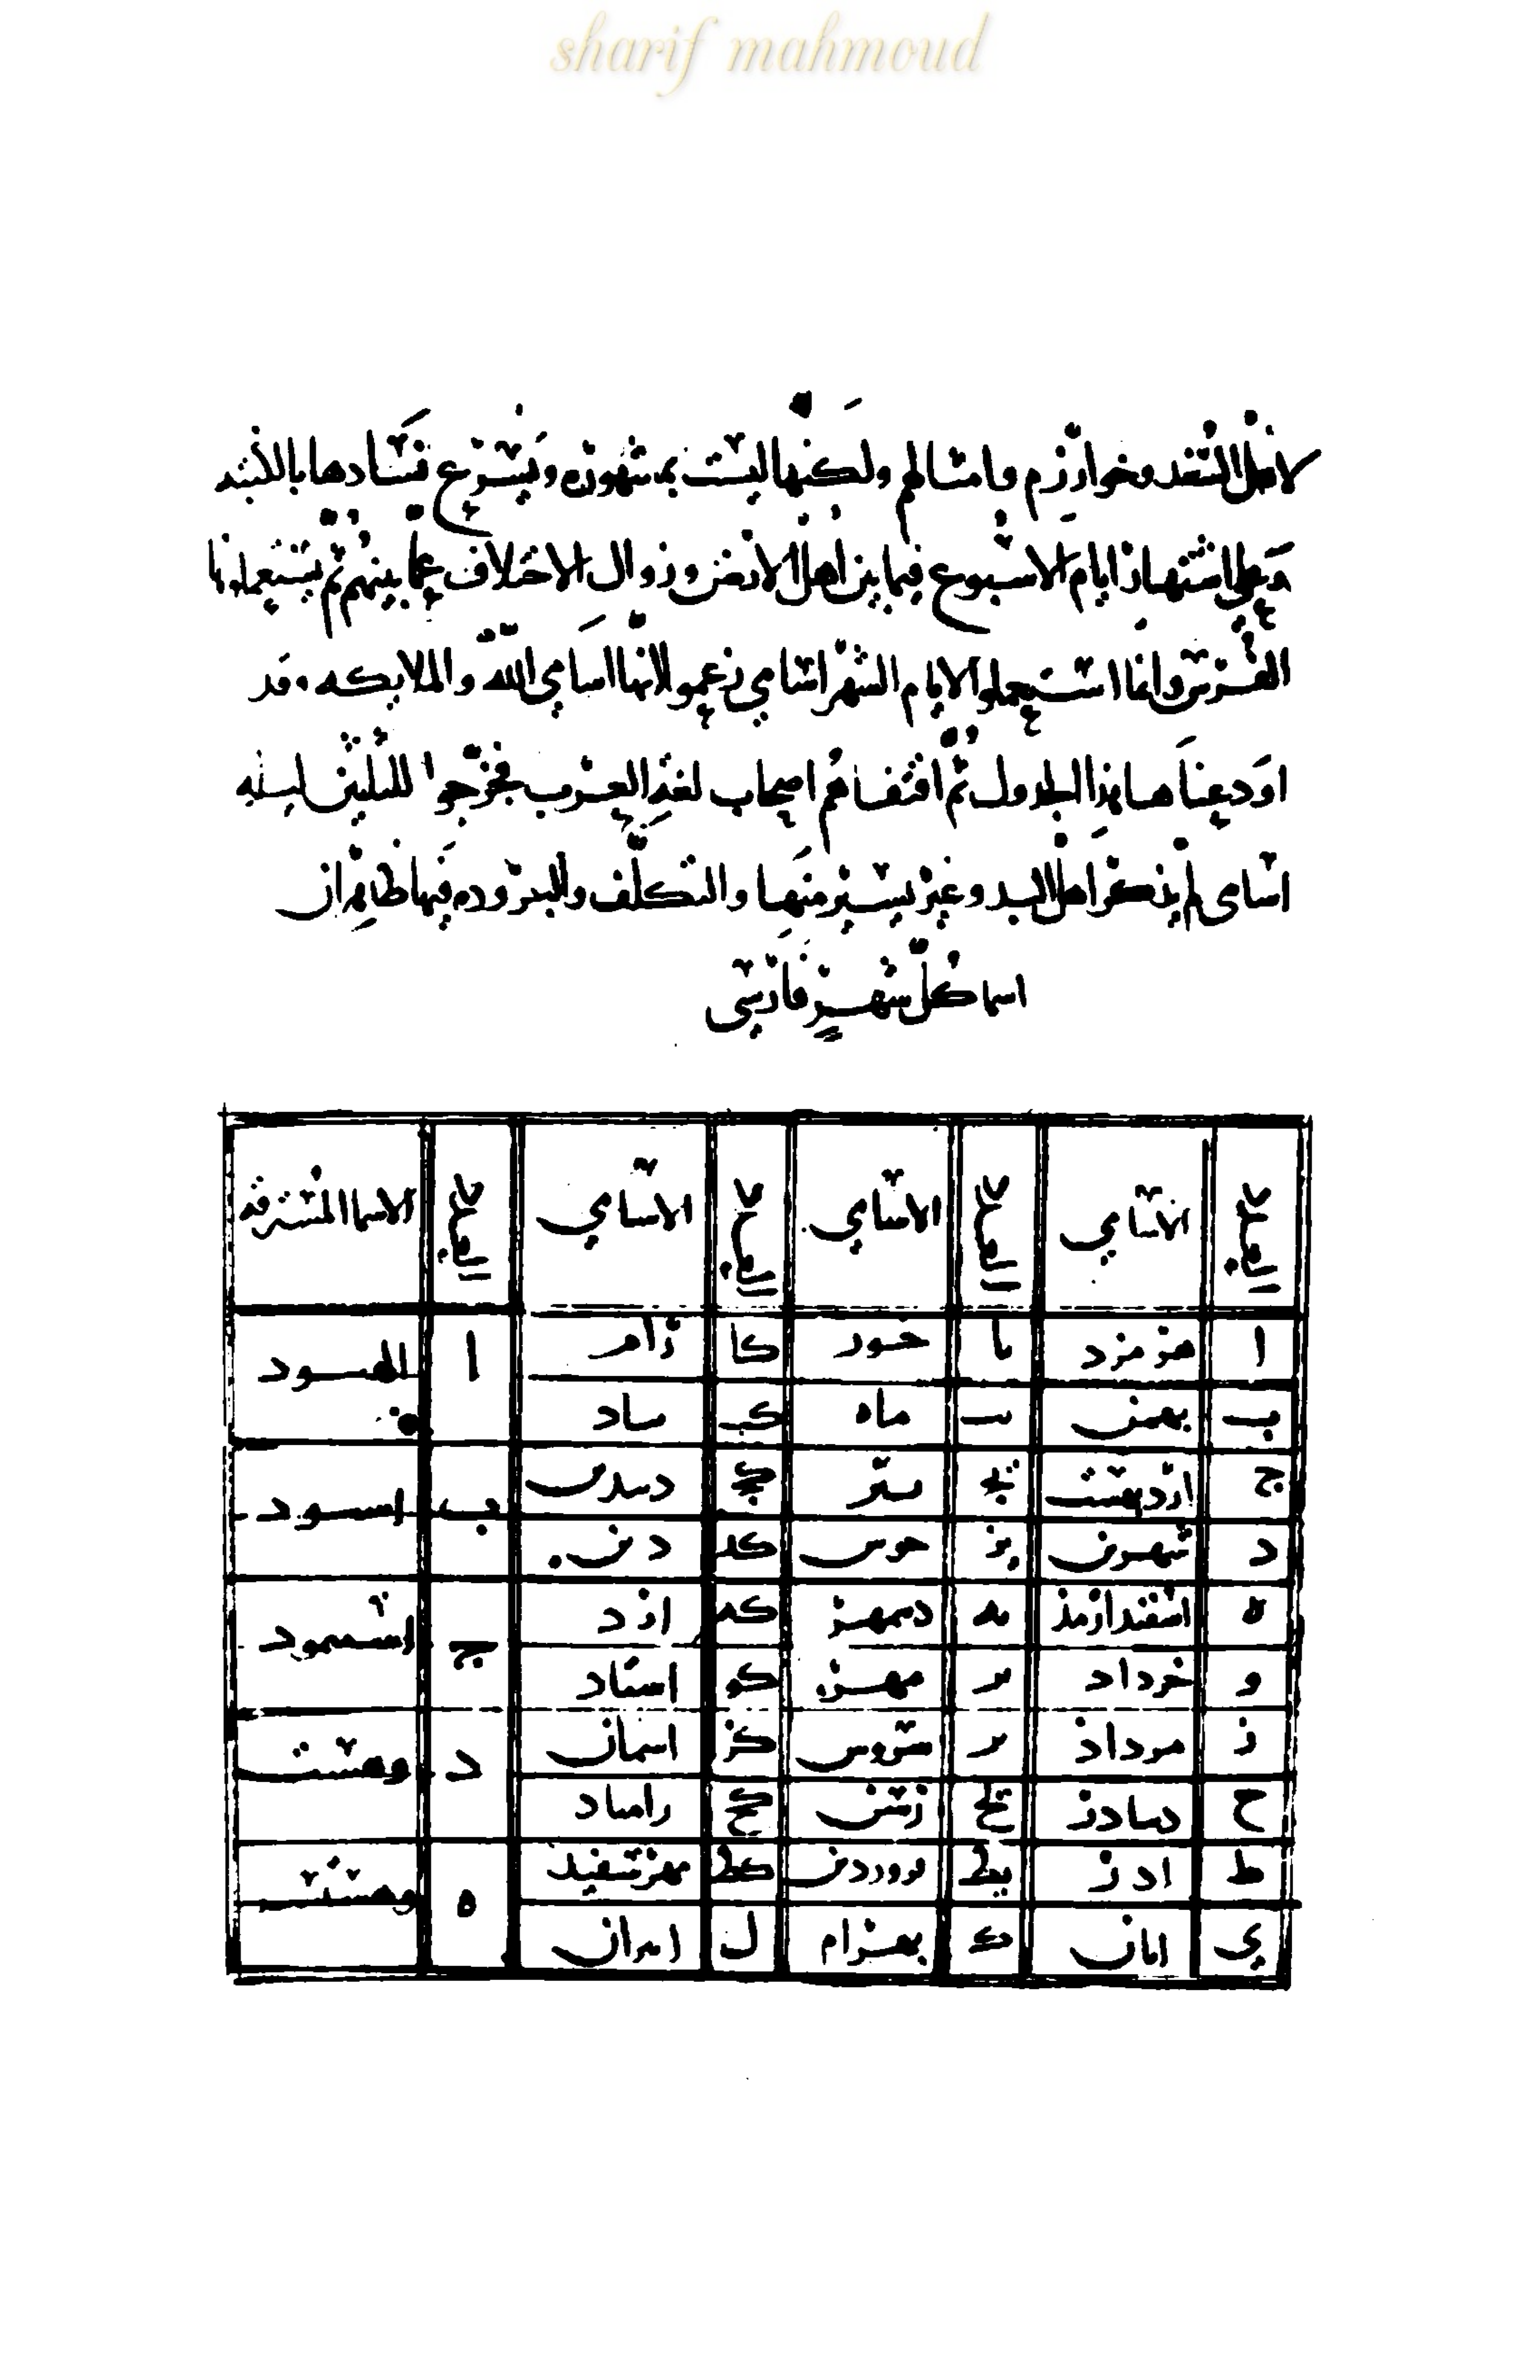 sharif mahmoud
لاهل السغد وخوارزم وامثالهم ولكنها ليست بمشهورة ويسرع فسادها
وعلى اشتهار ايام الاسبوع فيما بين اهل الارض وزوال الاختلاف عما بينهم ثم يستعملونها
الفرس وانما استعملوا لايام الشهر اسامي زعموا انها اسامي الله والملايكه وقد
اودعناها هذا الجدول ثم اقتفاهم اصحاب لغة العرب فخرجوا لثلثين ليله
اسامي لم يذكر اهل البدو غير يسير منها والتكلف والبروده فيها ظاهران
اسما كل شهر فارسي
العدد الاسامي العدد الاسامي العدد الاسامي العدد الاسما المسترقه
ا هرمزد يا خور كا رام ا اهسود
ب بهمن يب ماه كب باد
ج اردبهشت يج تير كج دبدين ب اسسود
د شهرير يد جوش كد دين
ه اسفندارمذ يه دبمهر كه ارد ج اسفمود
و خرداد يو مهر كو اشتاد
ز مرداد يز سروش كز اسمان د وهشت
ح ديبادر يح رشن كح رامياد
ط ادر يط فروردين كط مهرسفند ه وهشتش
ي ابان ك بهرام ل انيران